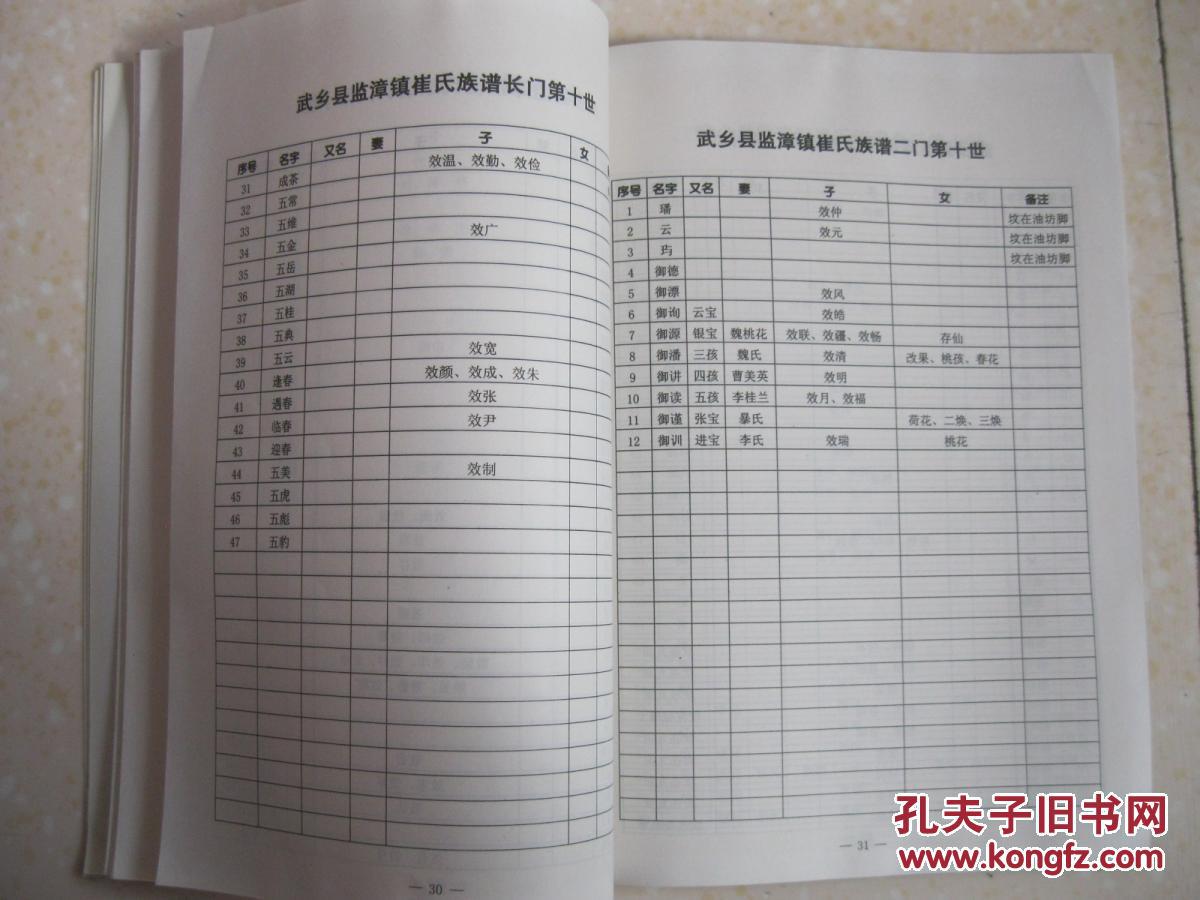 武乡县监漳镇崔氏族谱长门第十世
序号 名字 又名 妻 子 女
31 成茶 效温、效勤、效俭
32 五常
33 五维
34 五金 效广
35 五岳
36 五湖
37 五桂
38 五典
39 五云 效宽
40 逢春 效颜、效成、效朱
41 遇春 效张
42 临春 效尹
43 迎春
44 五美 效制
45 五虎
46 五彪
47 五豹
— 30 —
武乡县监漳镇崔氏族谱二门第十世
序号 名字 又名 妻 子 女 备注
1 璠 效仲 坟在油坊脚
2 云 效元 坟在油坊脚
3 玙 坟在油坊脚
4 御德
5 御漂 效风
6 御询 云宝 效皓
7 御源 银宝 魏桃花 效联、效疆、效畅 存仙
8 御潘 三孩 魏氏 效清 改果、桃孩、春花
9 御讲 四孩 曹美英 效明
10 御读 五孩 李桂兰 效月、效福
11 御谨 张宝 暴氏 荷花、二焕、三焕
12 御训 进宝 李氏 效瑞 桃花
— 31 —
孔夫子旧书网
www.kongfz.com